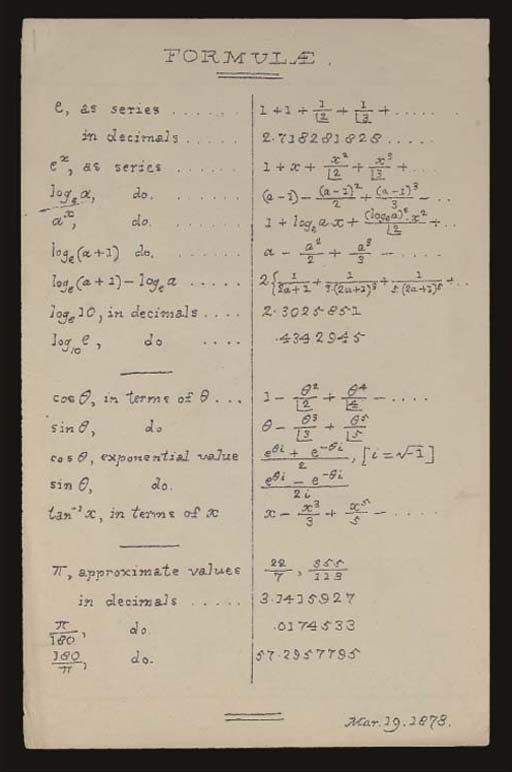 FORMULÆ.
e, as series ...... 1 + 1 + 1/⌊2 + 1/⌊3 + ......
in decimals ..... 2·718281828 .....
eˣ, as series ...... 1 + x + x²/⌊2 + x³/⌊3 + ...
logₑa, do. ...... (a-1) - (a-1)²/2 + (a-1)³/3 - ...
aˣ, do. ...... 1 + logₑa x + (logₑa)²·x²/⌊2 + ..
logₑ(a+1) do. ...... a - a²/2 + a³/3 - ....
logₑ(a+1) - logₑa ..... 2{1/(2a+1) + 1/3·(2a+1)³ + 1/5·(2a+1)⁵ + ..
logₑ10, in decimals .... 2·3025851
log₁₀e, do .... ·4342945
cos θ, in terms of θ ... 1 - θ²/⌊2 + θ⁴/⌊4 - ....
sin θ, do θ - θ³/⌊3 + θ⁵/⌊5
cos θ, exponential value (e^θi + e^-θi)/2, [i = √-1]
sin θ, do. (e^θi - e^-θi)/2i
tan⁻¹x, in terms of x x - x³/3 + x⁵/5 - ....
π, approximate values 22/7, 355/113
in decimals ..... 3·1415927
π/180, do. ·0174533
180/π, do. 57·2957795
Mar. 19. 1878.